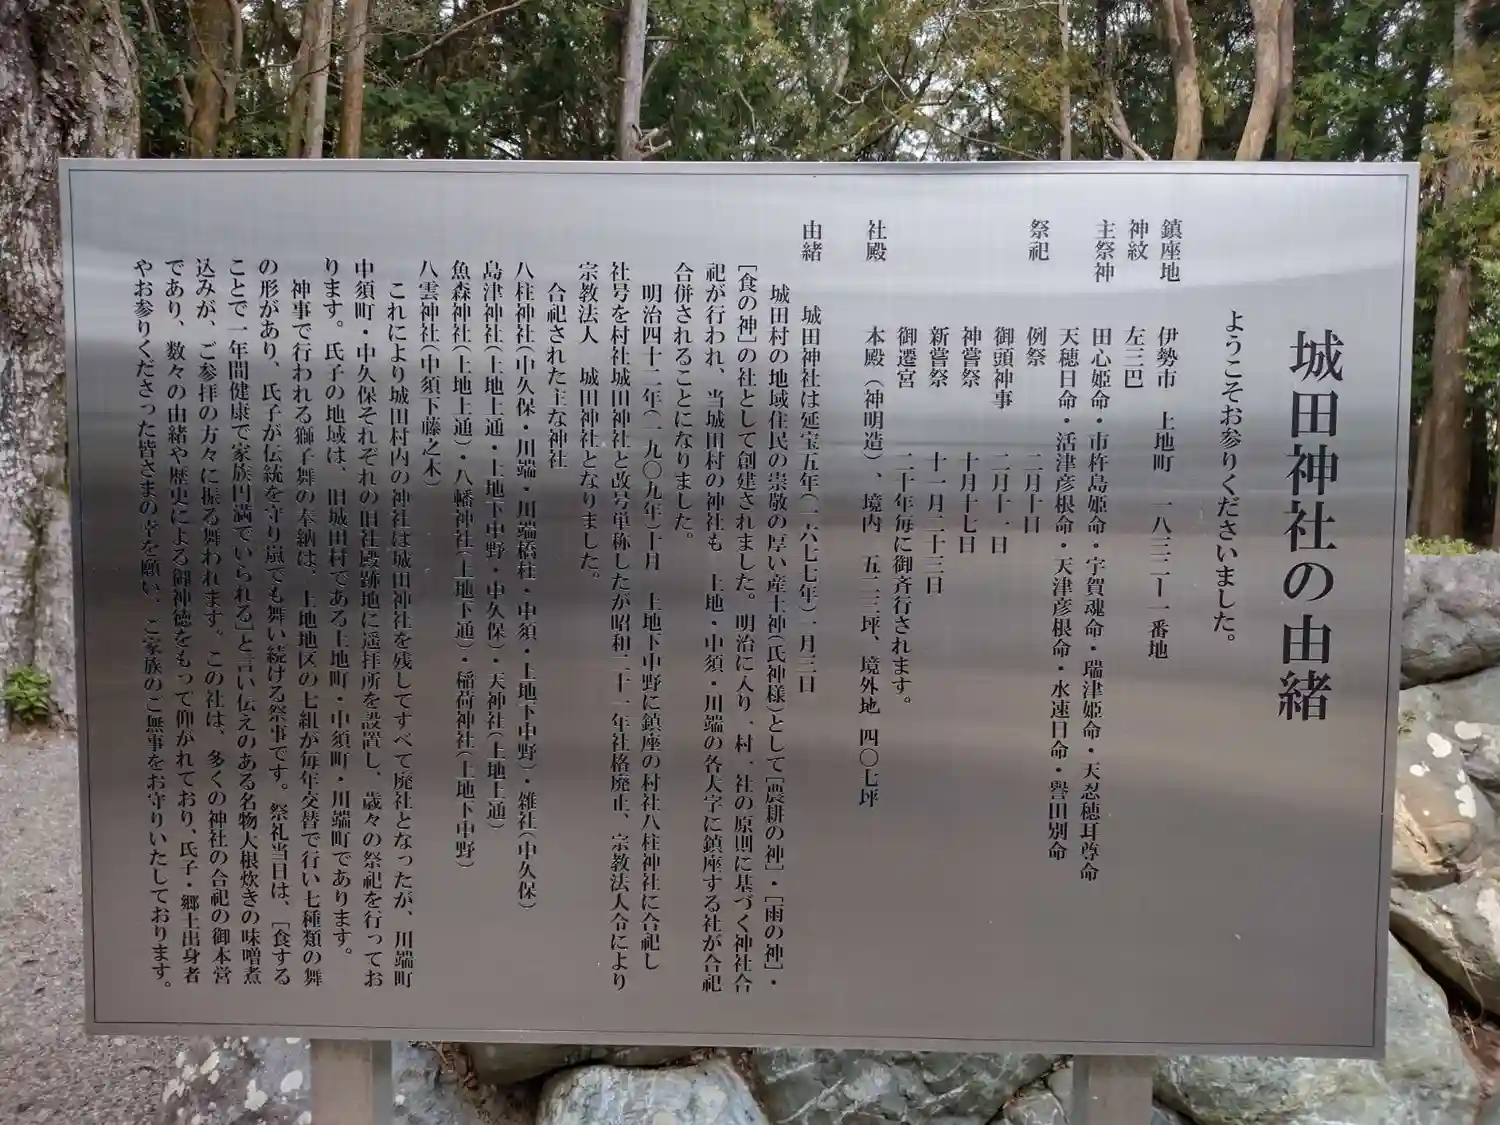 城田神社の由緒
ようこそお参りくださいました。
鎮座地　伊勢市　上地町　一八三二ー一番地
神紋　左三巴
主祭神　田心姫命・市杵島姫命・宇賀魂命・瑞津姫命・天忍穂耳尊命
天穂日命・活津彦根命・天津彦根命・水速日命・譽田別命
祭祀　例祭　二月十日
御頭神事　二月十一日
神嘗祭　十月十七日
新嘗祭　十一月二十三日
御遷宮　二十年毎に御斉行されます。
社殿　本殿（神明造）、境内　五二三坪、境外地　四〇七坪
由緒　城田神社は延宝五年（一六七七年）一月三日
城田村の地域住民の崇敬の厚い産土神（氏神様）として［農耕の神］・［雨の神］・
［食の神］の社として創建されました。明治に入り、村一社の原則に基づく神社合
祀が行われ、当城田村の神社も　上地・中須・川端の各大字に鎮座する社が合祀
合併されることになりました。
明治四十二年（一九〇九年）十月　上地下中野に鎮座の村社八柱神社に合祀し
社号を村社城田神社と改号単称したが昭和二十一年社格廃止、宗教法人令により
宗教法人　城田神社となりました。
合祀された主な神社
八柱神社（中久保・川端・川端橋柱・中須・上地下中野）・雑社（中久保）
島津神社（上地上通・上地下中野・中久保）・天神社（上地上通）
魚森神社（上地上通）・八幡神社（上地下通）・稲荷神社（上地下中野）
八雲神社（中須下藤之木）
これにより城田村内の神社は城田神社を残してすべて廃社となったが、川端町
中須町・中久保それぞれの旧社殿跡地に遥拝所を設置し、歳々の祭祀を行ってお
ります。氏子の地域は、旧城田村である上地町・中須町・川端町であります。
神事で行われる獅子舞の奉納は、上地地区の七組が毎年交替で行い七種類の舞
の形があり、氏子が伝統を守り嵐でも舞い続ける祭事です。祭礼当日は、［食する
ことで一年間健康で家族円満でいられる］と言い伝えのある名物大根炊きの味噌煮
込みが、ご参拝の方々に振る舞われます。この社は、多くの神社の合祀の御本営
であり、数々の由緒や歴史による御神徳をもって仰がれており、氏子・郷土出身者
やお参りくださった皆さまの幸を願い、ご家族のご無事をお守りいたしております。